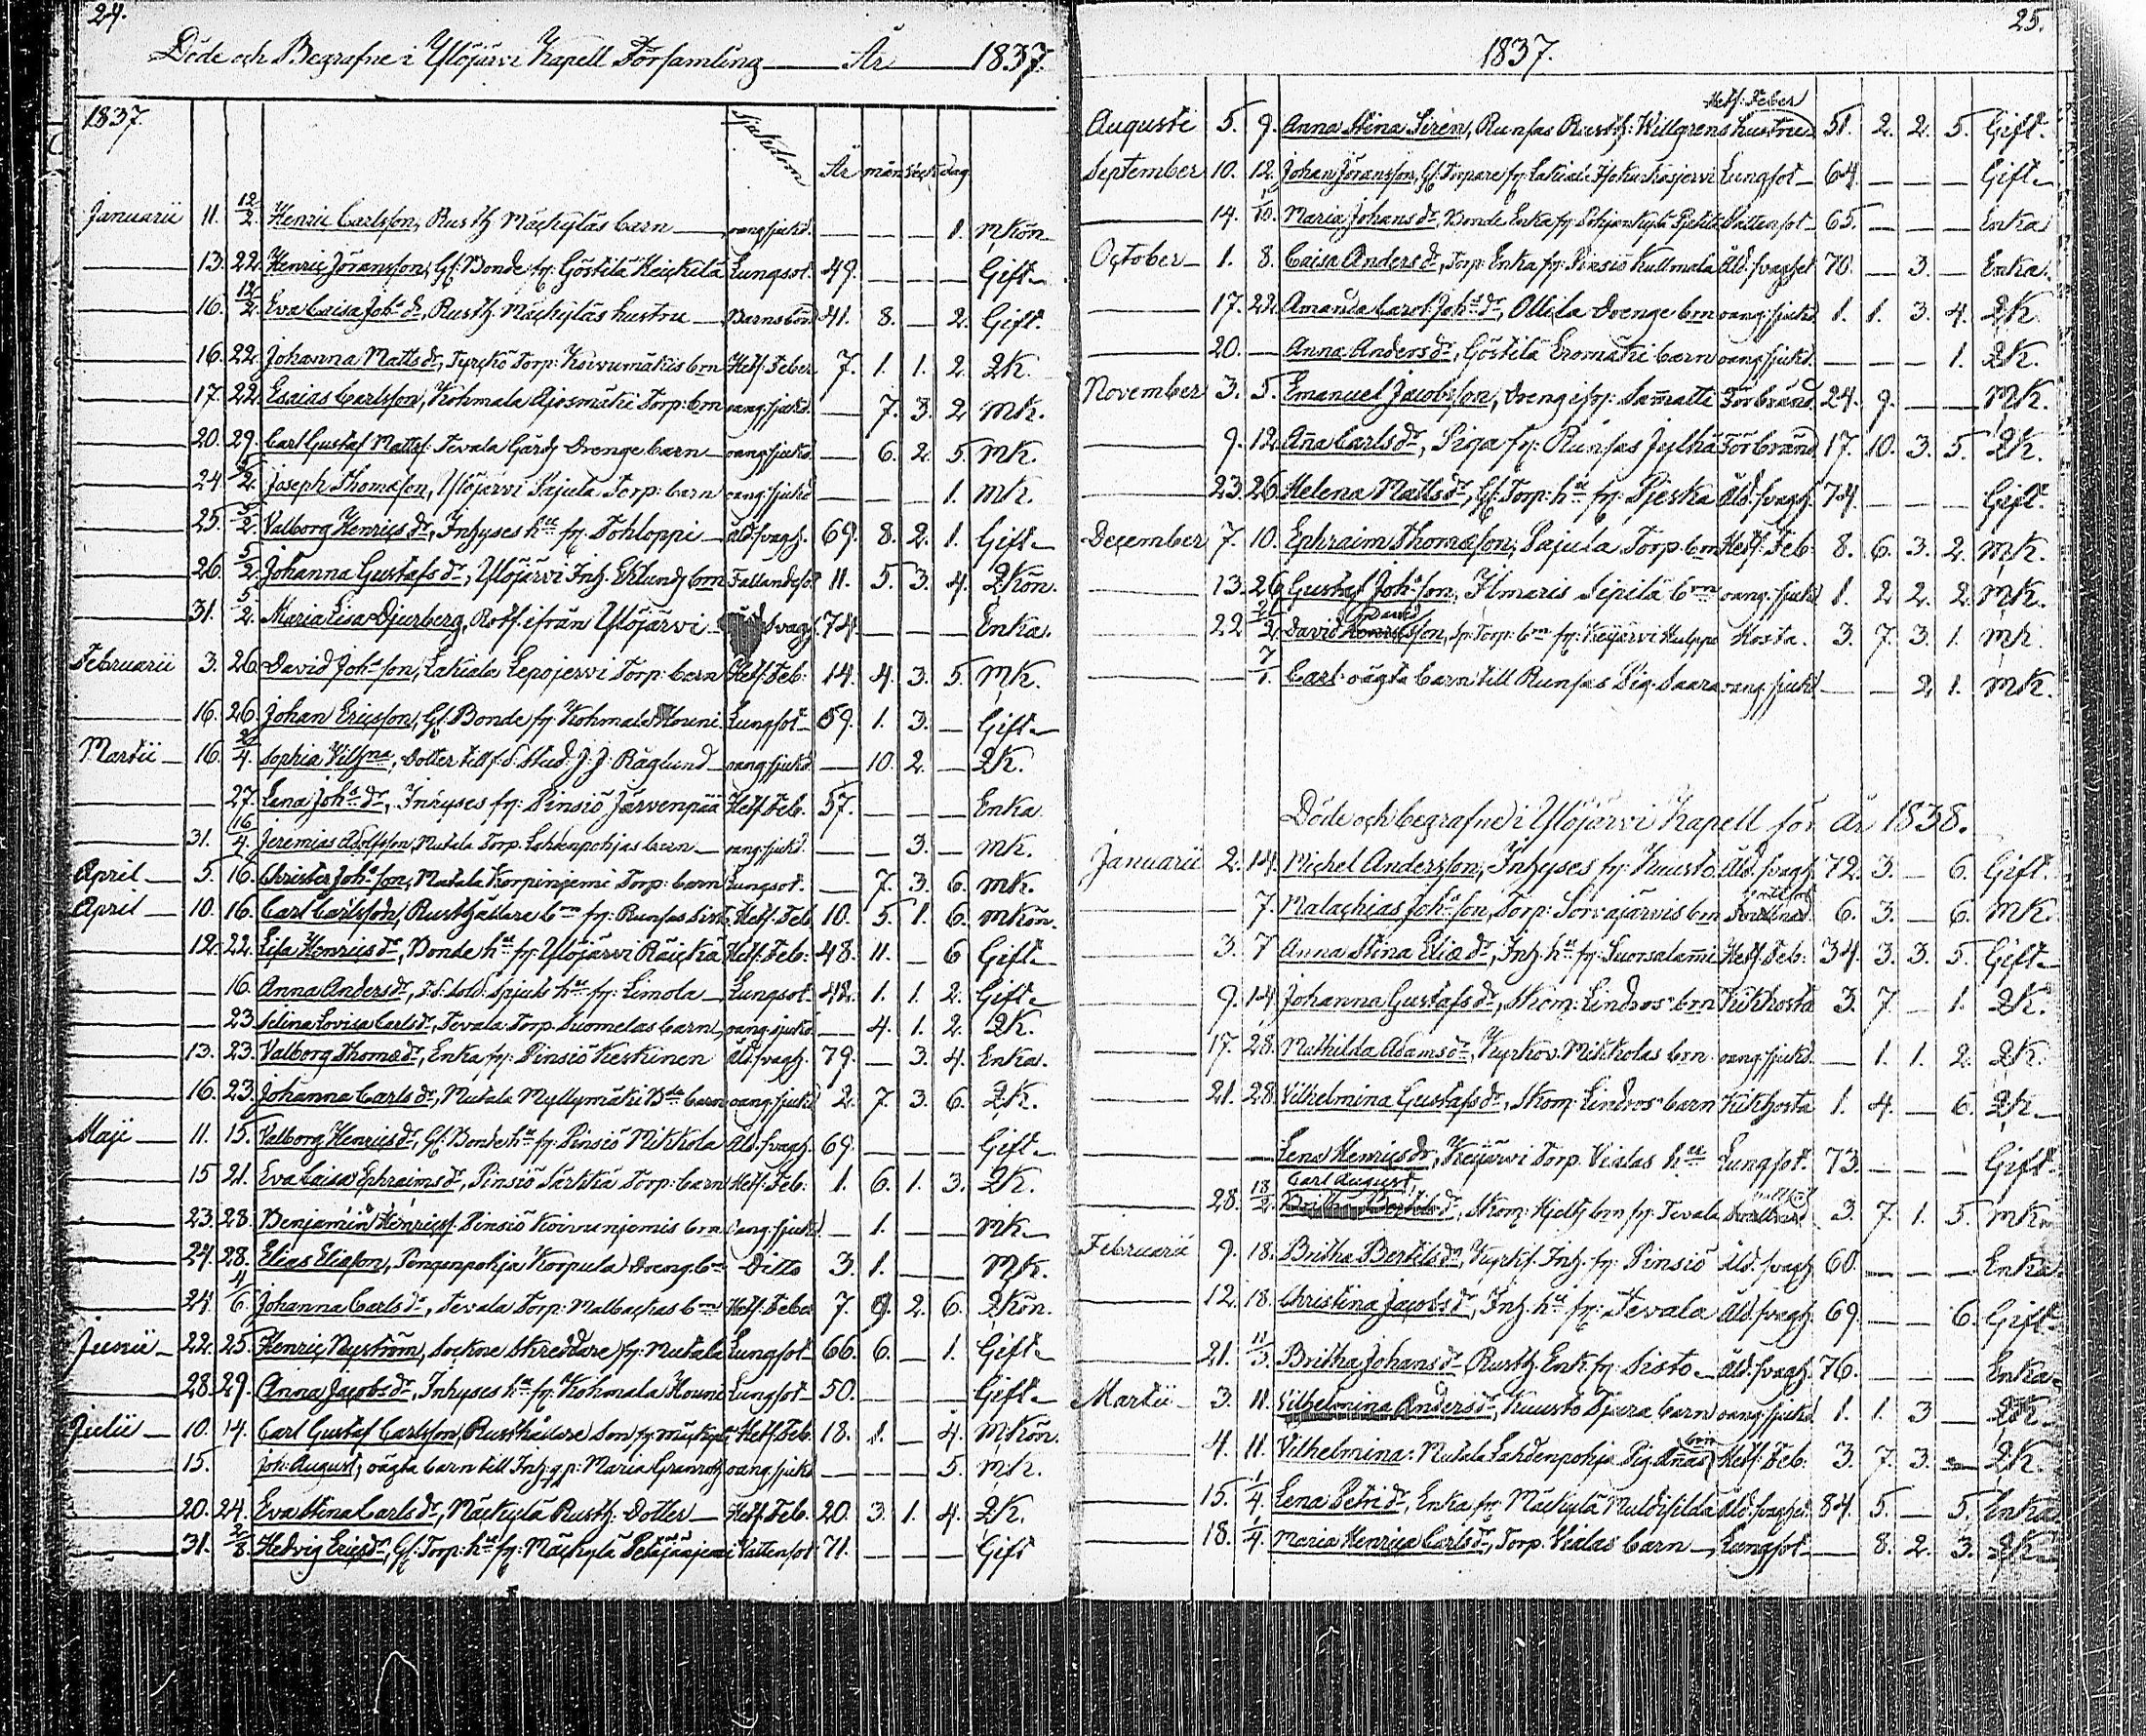 24.
Döde och Begrafne i Ylöjärvi Kapell Församling — År 1837.
1837. Sjukdom År mån veck dag
Januarii 11. 12/2. Henric Carlsson, Rusth. Mäckyläs barn — oang. sjukd. — — — 1. MKön
— 13. 22. Henric Jöransson, Gl. Bonde fr. Göstilä Keickilä Lungsot. 49. — — — Gift
— 16. 12/2. Eva Caisa Joh:s dr, Rusth. Mäckyläs hustru — Barnsbörd 41. 8. — 2. Gift.
— 16. 22. Johanna Matts dr, Tyrckö Torp: Koivumäkis brn Hetf: Feber 7. 1. 1. 2. QK.
— 17. 22. Esaias Carlsson, Kohmala Ajosmäki Torp: brn oang. sjukd. — 7. 3. 2. MK.
— 20. 29. Carl Gustaf Mattss. Tevala Gårds Drenge barn — oang. sjukd. — 6. 2. 5. MK.
— 24. 5/2. Joseph Thomasson, Ylöjärvi Pajula Torp: barn oang. sjukd — — — 1. MK.
— 25. 5/2. Valborg Henrics dr, Inhyses hu fr. Tohloppi — åld. svagh. 69. 8. 2. 1. Gift
— 26. 5/2. Johanna Gustafs dr, Ylöjärvi Inh. Eklunds brn Fallandesot 11. 5. 3. 4. QKön.
— 31. 5/2. Maria Lisa Djurberg, Rotf. ifrån Ylöjärvi — svagh. 74. — — — Enka.
Februarii 3. 26. David Joh:s son, Lakiala Lepojervi Torp: barn Hetf. Feb: 14. 4. 3. 5. MK.
— 16. 26. Johan Ericsson, Gl. Bonde fr. Kohmala Houni Lungsot — 59. 1. 3. — Gift
Martii — 16. 2/4. Sophia Vilhna, dotter till f.d. Stud. J. J. Råglund — oang. sjukd — 10. 2. — QK.
— — 27. Lena Joh:s dr, Inhyses fr: Pinsiö Järvenpää Hetf. Feb. 57. — — — Enka
— 31. 16/4. Jeremias Adolfsson, Mutala Torp. Lahdenpohjas barn — oang. sjukd. — — 3. — MK.
April — 5. 16. Christer Joh:s son, Mutala Korpiniemi Torp: barn Lungsot. — 7. 3. 6. MK.
April — 10. 16. Carl Carlsson, Rusthållare bm fr: Runsas Hetf. Feb 10. 5. 1. 6. MKön.
— 12. 22. Lisa Henrics dr, Bonde hu fr. Ylöjärvi Räickä Hetf. Feb: 48. 11. — 6 Gift
— — 16. Anna Anders dr, f.d. Sold. Spjuts hu fr: Limola — Lungsot — 42. 1. 1. 2. Gift
— — 23 Selina Lovisa Carls dr, Tevala Torp. Suomelas barn, oang. sjukd — 4. 1. 2. QK.
— 13. 23. Valborg Thomas dr, Enka fr: Pinsiö Keskinen åld. svagh. 79. — 3. 4. Enka.
— 16. 23. Johanna Carls dr, Mutala Myllymäki Bde barn oang. sjukd 2. 7. 3. 6. QK.
Maji — 11. 15. Valborg Henrics dr, Gl. Bonde hu fr. Pinsiö Mikkola åld. svagh. 69. — — — Gift
— 15 21. Eva Caisa Ephraims dr, Pinsiö Särkkä Torp: barn Hetf. Feb: 1. 6. 1. 3. QK.
— 23. 28. Benjamin Henricss. Pinsiö Koivuniemis brn oang. sjukd — 1. — — MK
— 24. 28. Elias Eliasson, Pengonpohja Korpula Dreng. bn Ditto 3. 1. — — MK.
— 24 4/6. Johanna Carls dr, Tevala Torp: Malbackas bm Hetf. Feber 7. 9. 2. 6. QKön.
Junii — 22. 25. Henric Nyström, Sockne Skreddare fr. Mutala Lungsot 66. 6. — 1. Gift
— 28. 29. Anna Jacobs dr, Inhyses hu fr. Kohmala Houni Lungsot 50. — — — Gift
Julii — 10. 14. Carl Gustaf Carlsson, Rusthållare Son fr. Mäckylä, Hetf. Feb. 18. 1. — 4. MKön.
— 15. Joh: August, oägta barn till Inh. q. p: Maria Granroth oang. sjukd — — — 5. MK.
— 20. 24. Eva Stina Carls dr, Mäckylä Rusth. Dotter — Hetf. Feb. 20. 3. 1. 4. QK.
— 31. 2/8. Hedvig Erics dr, Gl. Torp: hu fr. Mäckylä Petäjäajem Vattensot 71. — — — Gift
25.
1837.
Augusti 5. 9. Anna Stina Siren, Runsas Rusth: Willgrens hustru Hetf: Feber 51. 2. 2. 5. Gift.
September 10. 12. Johan Jöransson, Gl. Torpare fr. Lakiala Iso Kurkisjervi Lungsot — 64. — — — Gift
— 14. 10. Maria Johans dr, Bonde Enka fr. Pohjankylä Vattensot 65. — — — Enka
October — 1. 8. Caisa Anders dr, Torp: Enka fr. Pinsiö Kullmala Åld. svaghet 70. — 3. — Enka.
— 17. 22. Amanda Carol. Joh:s dr, Ollila Drenge brn oang. sjukd. 1. 1. 3. 4. QK.
— 20. — Anna Anders dr, Göstilä Eromäki barn oang. sjukd. — — — 1. QK.
November 3. 5. Emanuel Jacobsson, Dreng ifr: Sammatti Förbränd. 24. 9. — — MK.
— 9. 12. Anna Carls dr, Piga fr: Runsas Jylhä Förbränd. 17. 10. 3. 5. QK.
— 23 26. Helena Matts dr, Gl. Torp: hu fr. Pjeska Åld. svagh. 74. — — — Gift.
December 7. 10. Ephraim Thomasson, Pajula Torp. brn Hetf. Feb 8. 6. 3. 2. MK.
— 13. 26 Gustaf Joh:s son, Ilmaris Sipilä bm oang. sjukd 1. 2 2. 2. MK.
— 22 21/2 David, Sp. Torp: bm fr: Keijärvi Hulppo Hosta. 3. 7. 3. 1. MK.
— — 7/1. Carl oägta barn till Runsas Pig. Saara oang. sjukd — — 2 1. MK.
Döde och begrafne i Ylöjärvi Kapell för år 1838.
Januarii 2. 14. Michel Andersson, Inhyses fr. Kuusto Åld. svagh. 72. 3. — 6. Gift.
— — 7. Malachias Joh:s son, Torp: Sorvajärvis brn 6. 3. — 6. MK.
— 3. 7 Anna Stina Elias dr, Inh. hu fr: Suorsalammi Hetf. Feb: 34. 3. 3. 5. Gift
— 9. 14 Johanna Gustafs dr, Skom: Lindros brn Kikhosta 3. 7. — 1. QK.
— 17. 28. Mathilda Adams dr, Kyrkov. Mikkolas brn. oang. sjukd. — 1. 1. 2. QK.
— 21. 28. Vilhelmina Gustafs dr, Skom: Lindros barn Kikhosta 1. 4. — 6. QK
— — Lena Henrics dr, Keijärvi Torp. Vialas hu Lungsot. 73. — — — Gift.
— 28. 18/2. Carl August, Skom: Hjelts brn fr. Tevala 3. 7. 1. 5. MK
Februarii 9. 18. Britha Bertils dr, Kyrkf. Inh. fr. Pinsiö Åld. svagh. 60. — — — Enka.
— 12. 18. Christina Jacobs dr, Inh. hu fr. Tevala Åld. svagh. 69 — — 6. Gift
— 21. 11/3. Britha Johans dr, Rusth. Enk. fr. Sisto — Åld. svagh. 76. — — — Enka
Martii — 3. 11. Vilhelmina Anders dr, Kuusto Djura barn oang. sjukd. 1. 1. 3 — QK
— 4. 11. Vilhelmina: Mutala Lahdenpohja Pig. Annas brn Hetf. Feb. 3. 7. 3. — QK.
— 15. 1/4. Lena Petri dr, Enka fr. Mäckylä Åld. svaghet. 84. 5. — 5. Enka
— 18. 1/4. Maria Henrica Carls dr, Torp. Vialas barn — Lungsot — 8. 2. 3. QK